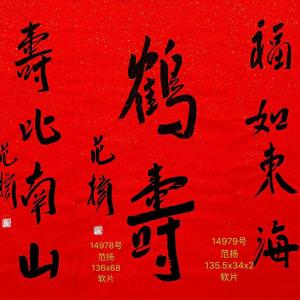 福如東海
鶴壽
范揚
壽比南山
范揚
14978号
范扬
136x68
软片
14979号
范扬
135.5x34x2
软片